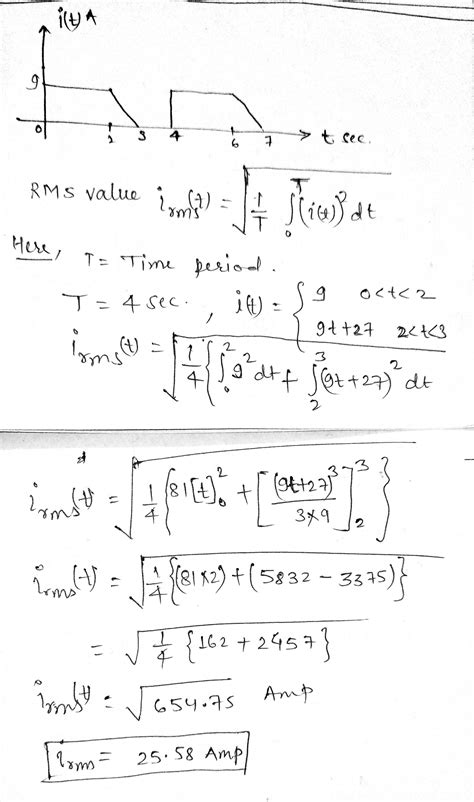 i(t) A
9
0 2 3 4 6 7 → t sec.
RMS value i_rms(t) = √(1/T ∫₀ᵀ (i(t))² dt)
Here, T = Time period.
T = 4 sec. , i(t) = { 9 0<t<2
9t+27 2<t<3
i_rms(t) = √(1/4 {∫₀² 9² dt + ∫₂³ (9t+27)² dt
i_rms(t) = √(1/4 {81[t]₀² + [(9t+27)³/(3×9)]₂³})
i_rms(t) = √(1/4 {(81×2) + (5832 − 3375)})
= √(1/4 {162 + 2457})
i_rms(t) = √654.75 Amp
i_rms = 25.58 Amp